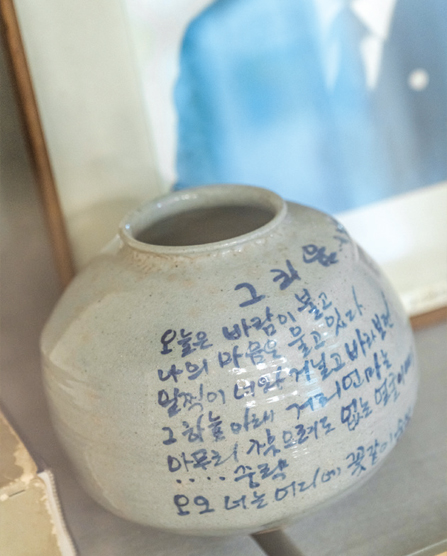 그리움
오늘은 바람이 불고
나의 마음은 울고 있다
일찍이 너와 거닐고 바라보던
그 하늘 아래 거리언마는
아무리 찾으려도 없는
···· 중략
오오 너는 어디에 꽃같이